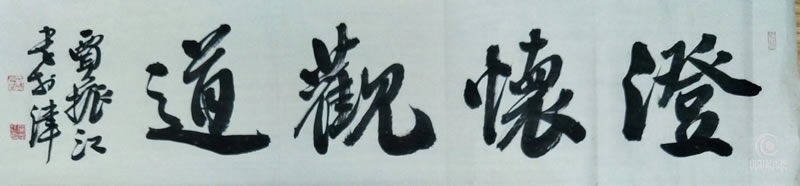 澄懷觀道
賈振江
書於津